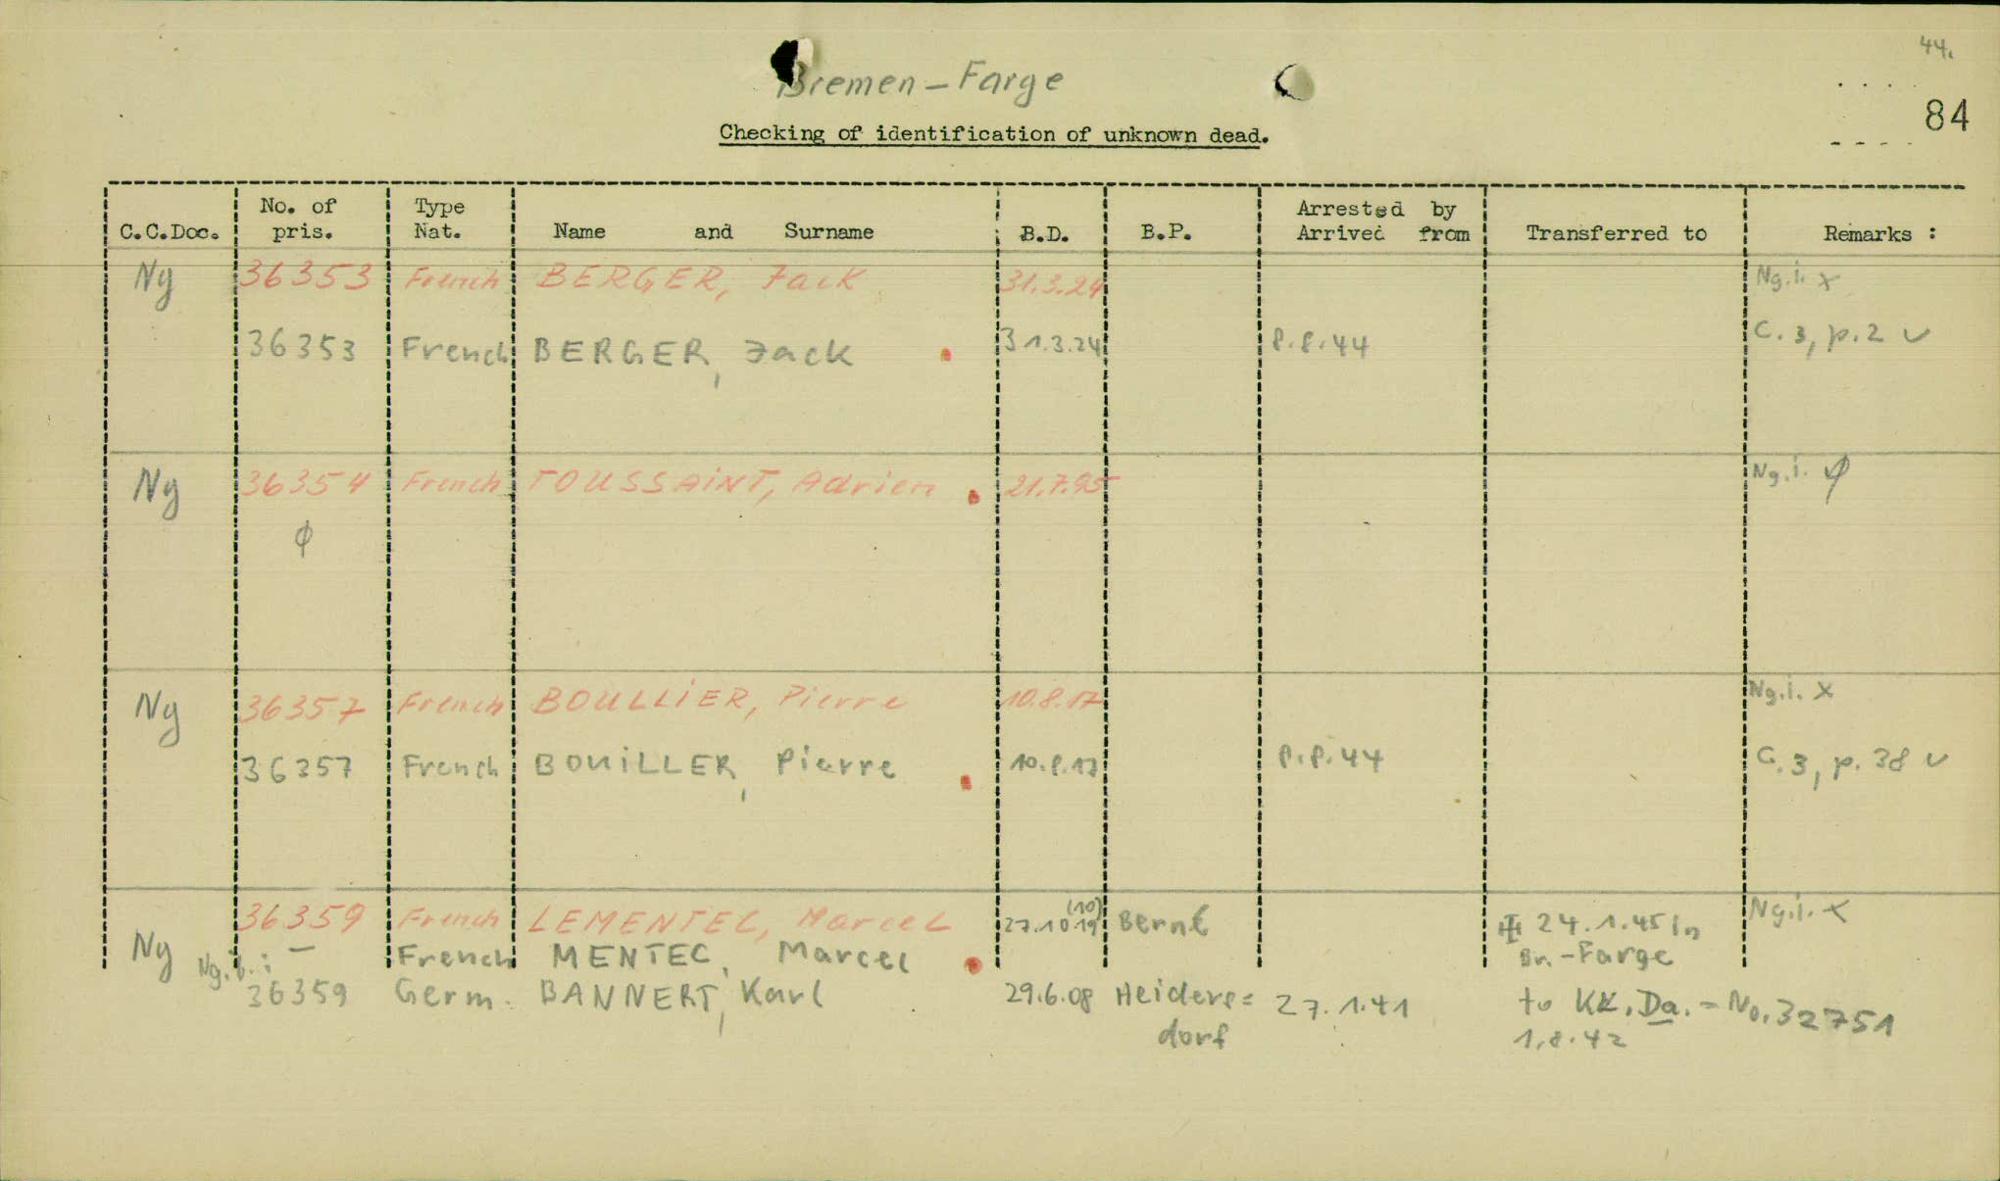 44.
Bremen - Farge
84
Checking of identification of unknown dead.
C.C.Doc. No. of pris. Type Nat. Name and Surname B.D. B.P. Arrested by Arrived from Transferred to Remarks :
Ng 36353 French BERGER, Jack 31.3.24 Ng.i. x
36353 French BERGER, Jack 31.3.24 8.8.44 C. 3, p.2 v
Ng 36354 French TOUSSAINT, Adrien 21.7.95 Ng.i. φ
φ
Ng 36357 French BOULLIER, Pierre 10.8.17 Ng.i. x
36357 French BOUILLER, Pierre 10.8.17 8.8.44 C. 3, p. 38 v
Ng 36359 French LEMENTEC, Marcel 27.10.19 (10) 24.1.45 in Ng.i. x
– French MENTEC, Marcel Br.-Farge
36359 Germ. BANNERT, Karl 29.6.08 Heiders= 27.1.41 to KZ. Da. = No. 32751
dorf 1.8.42